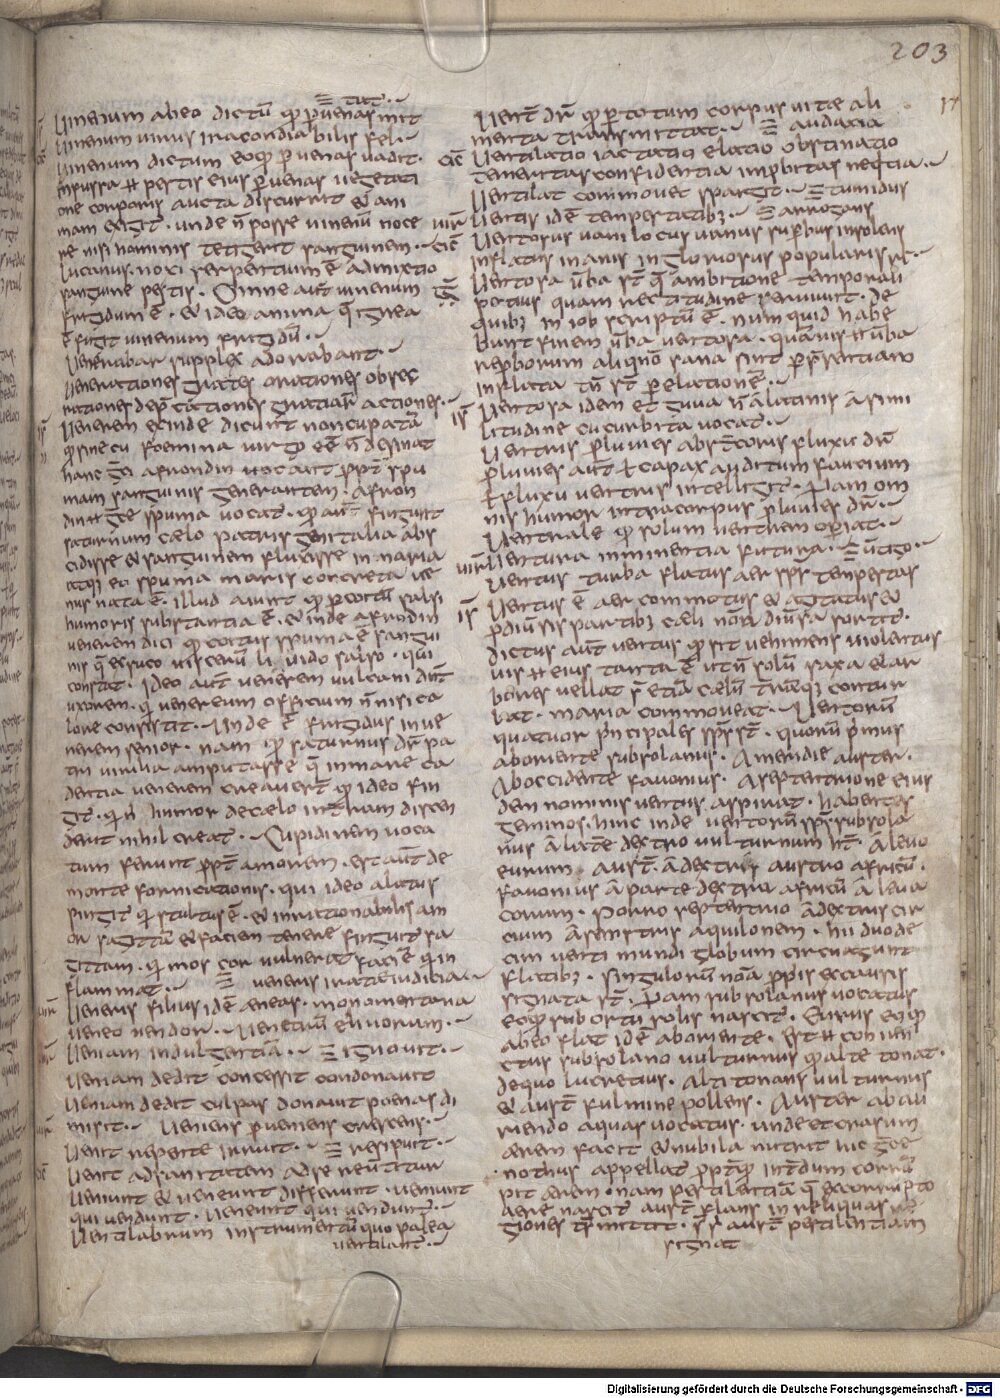 203
17
Uenenum abeo dictū qđ puenas
Uenenum uirus iracondia bilis fel.
Uenenum dictum eoqđ puenas uadit.
infussa pestis eius puenas uegetati
one corporis aucta discurrit & ani
mam exigit. unde ñ posse uenenū noce
re nisi hominis tetigerit sanguinem.
lucanus. noxi serpentium ē admixtio
sanguine pestis. Omne aūt uenenum
frigdum ē. & ideo anima q̄ ignea
ē fugit uenenum frigidū.
Uenerabar supplex adorabant.
Uenerationes grates orationes obsec
rationes dep̄cationes gratiarū actiones.
Uenerem exinde dicunt noncupatā
qđ sine eu foemina uirgo eē ñ desinat
hanc afrondin uocant ppt spu
mam sanguinis generantem. afron
spuma uocat. fingunt
saturnum caelo patris genitalia abs
cidisse & sanguinem fluxisse in maria
atq; eo spuma maris concreta ue
nus nata ē. illud aiunt qđ p coitū salsi
humoris substantia ē. & inde afrodin
uenerem dici qđ coitus spuma ē sangui
nis q̄ exsuco uiscerū liquido salso. qui
constat. ideo aūt uenerem uulcani dnt
uxorem. q uenereum officium ñ nisi ca
lore consistit. Unde ē frigidus in ue
nerem senior. nam qđ saturnus dr̄ pa
tri uirilia amputasse q̄ in mare ca
dentia uenerem creauerī qđ ideo fin
git. qi ñ humor decaelo in terram discen
derit nihil creat. Cupidinem uoca
tum ferunt ppt amorem. est aūt de
monte fornicationis. qui ideo alatus
pingit qi stultus ē. & inrationabilis am
or sagittā & facem tenere fingunt sa
gittam. qi mos cor uulnerat facē qi in
flammat. ueneris irate iudicia.
Ueneris filius idē aeneas. monomentaria
Ueneo uendor. Uenetiū
Ueniam indulgentiam. ignouit.
Ueniam dedit concessit condonauit
Ueniam dedit culpas donauit poenas di
misit. Ueniens pueniens crescens.
Uenit repente inruit. resipuit.
Uenit adsanitatem adse reuertitur
Ueniunt & ueneunt differunt. ueniunt
qui uendunt. ueneunt qui uenduntr.
Uentilabrum instrumentū quo palea
uentilant.
Uent dr̄ qđ p totum corpus uitae ali
menta transmittat. audaxia
Uentilatio iactatio elatio obstinatio
temeritas confidentia inpbitas neqtia.
Uentilat commouet spargit. tumidus
Uentis idē tempestatib;. arrogans
Uentosus uani locus uanus supbus insolens
inflatus inanis ingloriosus popularis
Uentosa ūba st q̄ ambitione temporali
potius quam rectitudine seruiunt. de
quib; in iob scriptū ē. num quid habe
bunt finem ūba uentosa. quāuis ūba
reproborum aliqñ sana sint
inflata tn̄ st p elationē.
Uentosa idem et guua a latinis a simi
litudine cucurbita uocat.
Uentris pluuies abst corus fluxu dr̄
pluuies aūt capax auditum faucium
fluxu uentris intellegit. Nam om
nis humor intra corpus pluuies dr̄.
Uentrale qđ solum uentrem opiat.
Uentura inminentia futura. uertigo.
Uentus turba flatus aer sps tempestas
Uentus ē aer commotus & agitatus &
pdiūsis partib; caeli noā diuersa sortit.
dictus aūt uentus qđ sit uehemens uiolentus
uis eius tanta ē ut ñ solū saxa & ar
bores uellat s etiā caelū terāq; contur
bat. maria commoueat. Uentorū
quatuor pncipales sps st. quorū primus
aboriente subsolanus. Ameridie auster.
Aboccidente fauonius. Aseptentrione eius
dem nominis uentus aspirat. habentes
geminos. hinc inde uentorū sps subsola
nus alatere dextro uulturnum ht. a leuo
eurum. aust. a dextris austro africū.
fauonius aparte dextra africū a leua
corum. Porro septentrio adextris cir
cium asinistris aquilonem. hii duode
cim uenti mundi globum circuagunt
flatib;. Singulorū noā ppis ex causis
signata st. Nam subsolanus uocatus
eoqđ sub ortū solis nascit. Eurus eoqđ
abeo flat idē aboriente. Est con iun
ctus subsolano uulturnus qđ alte tonat.
dequo lucretius. Altitonans uulturnus
& aust fulmine pollens. Auster ab au
riendo aquas uocatus. unde et crasum
aerem facit & nubila nutrit hic
nothus appellat pptqđ interdum corrū
pit aerem. nam pestilentiā q̄ ex corrupto
aere nascit aust flans in reliquas re
giones trāsmittit. aust pestilentiam
signat
Digitalisierung gefördert durch die Deutsche Forschungsgemeinschaft - DFG